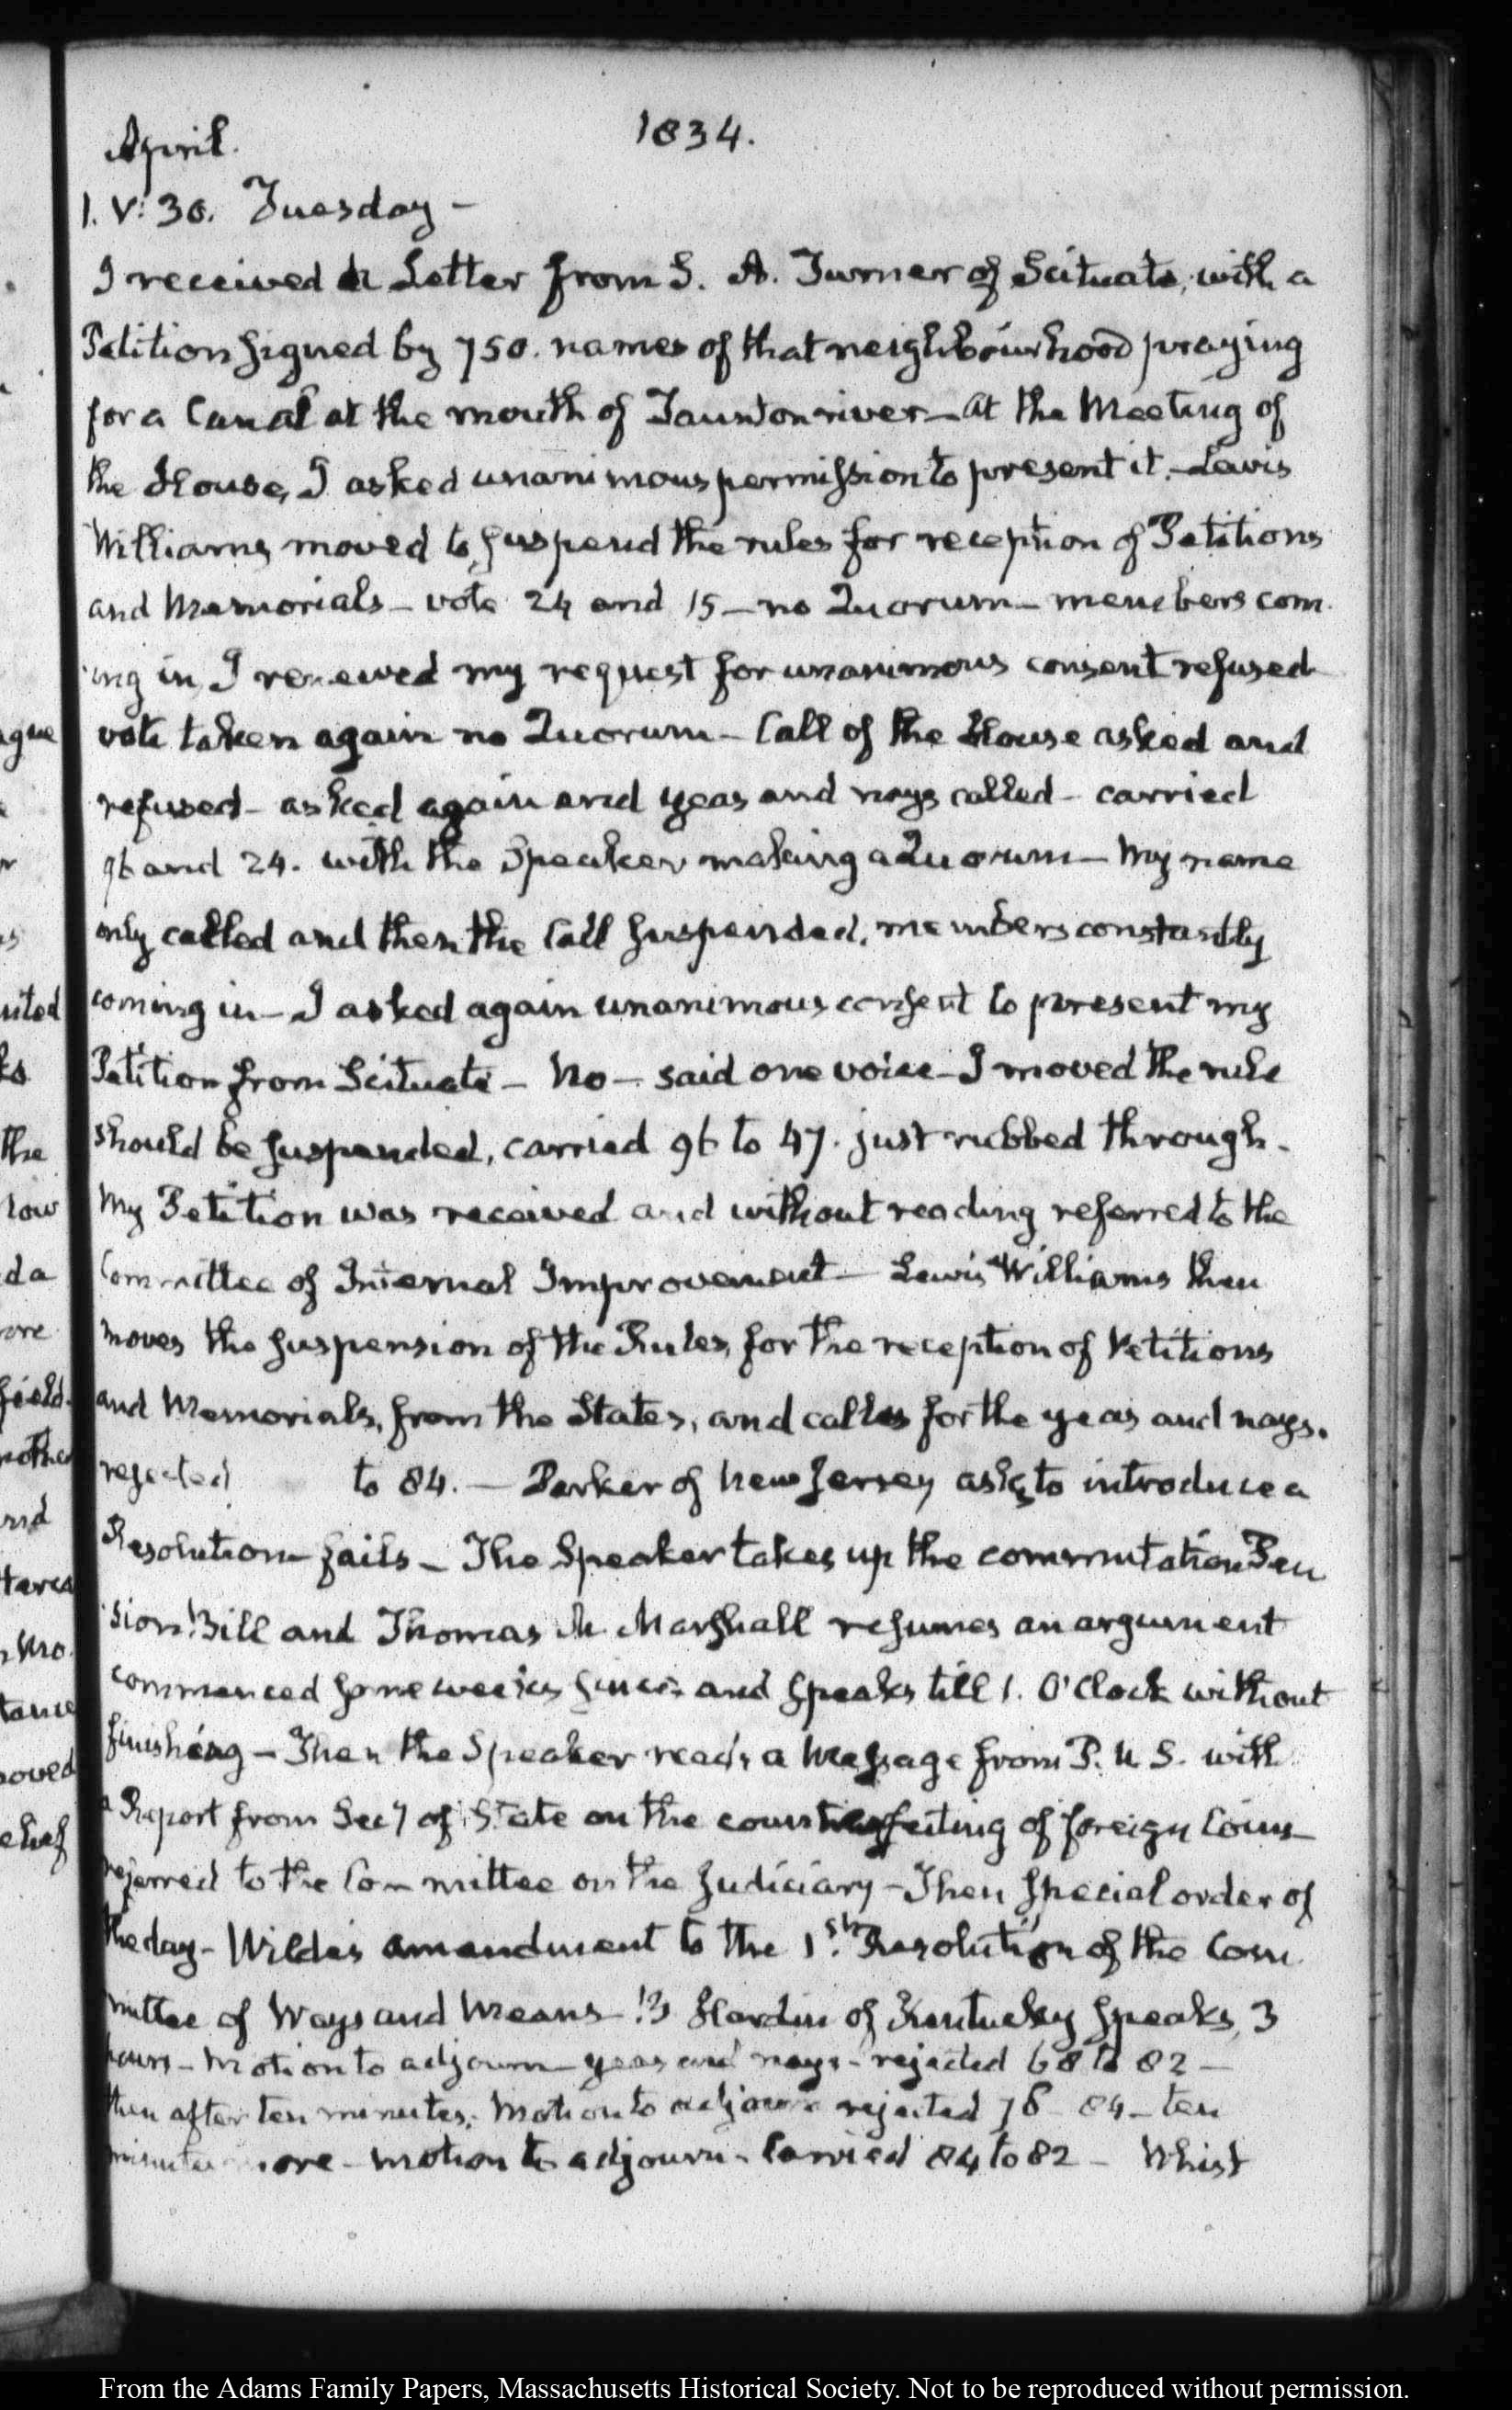 April. 1834.
1. V: 30. Tuesday –
I received a Letter from S. A. Turner of Scituate, with a
Petition signed by 750. names of that neighbourhood praying
for a Canal at the mouth of Taunton river – At the Meeting of
the House, I asked unanimous permission to present it. – Lewis
Williams moved to suspend the rules for reception of Petitions
and Memorials – vote 24 and 15 – no Quorum – members com
ing in, I renewed my request for unanimous consent refused
vote taken again no Quorum – Call of the House asked and
refused – asked again and yeas and nays called – carried
96 and 24. with the Speaker making a Quorum – My name
only called and then the Call suspended, members constantly
coming in – I asked again unanimous consent to present my
Petition from Scituate – No – said one voice – I moved the rule
should be suspended, carried 96 to 47. just rubbed through –
My Petition was received and without reading referred to the
Committee of Internal Improvement – Lewis Williams then
moves the suspension of the Rules, for the reception of Petitions
and Memorials, from the States, and calls for the yeas and nays.
rejected to 84. – Parker of New Jersey asks to introduce a
Resolution – fails – The Speaker takes up the commutation Pen
sion Bill and Thomas A. Marshall resumes an argument
commenced some weeks since and speaks till 1. O'Clock without
finishing – Then the Speaker reads a Message from P. U S. with
a Report from Secy of State on the counterfeiting of foreign Coins –
referred to the Committee on the Judiciary – Then special order of
the day – Wilde's amendment to the 1st. Resolution of the Com
mittee of Ways and Means – B Hardin of Kentucky speaks, 3
hours – Motion to adjourn – yeas and nays – rejected 68 to 82 –
then after ten minutes, Motion to adjourn rejected 78 84 – ten
minutes more – motion to adjourn – Carried 84 to 82 – Whist
From the Adams Family Papers, Massachusetts Historical Society. Not to be reproduced without permission.